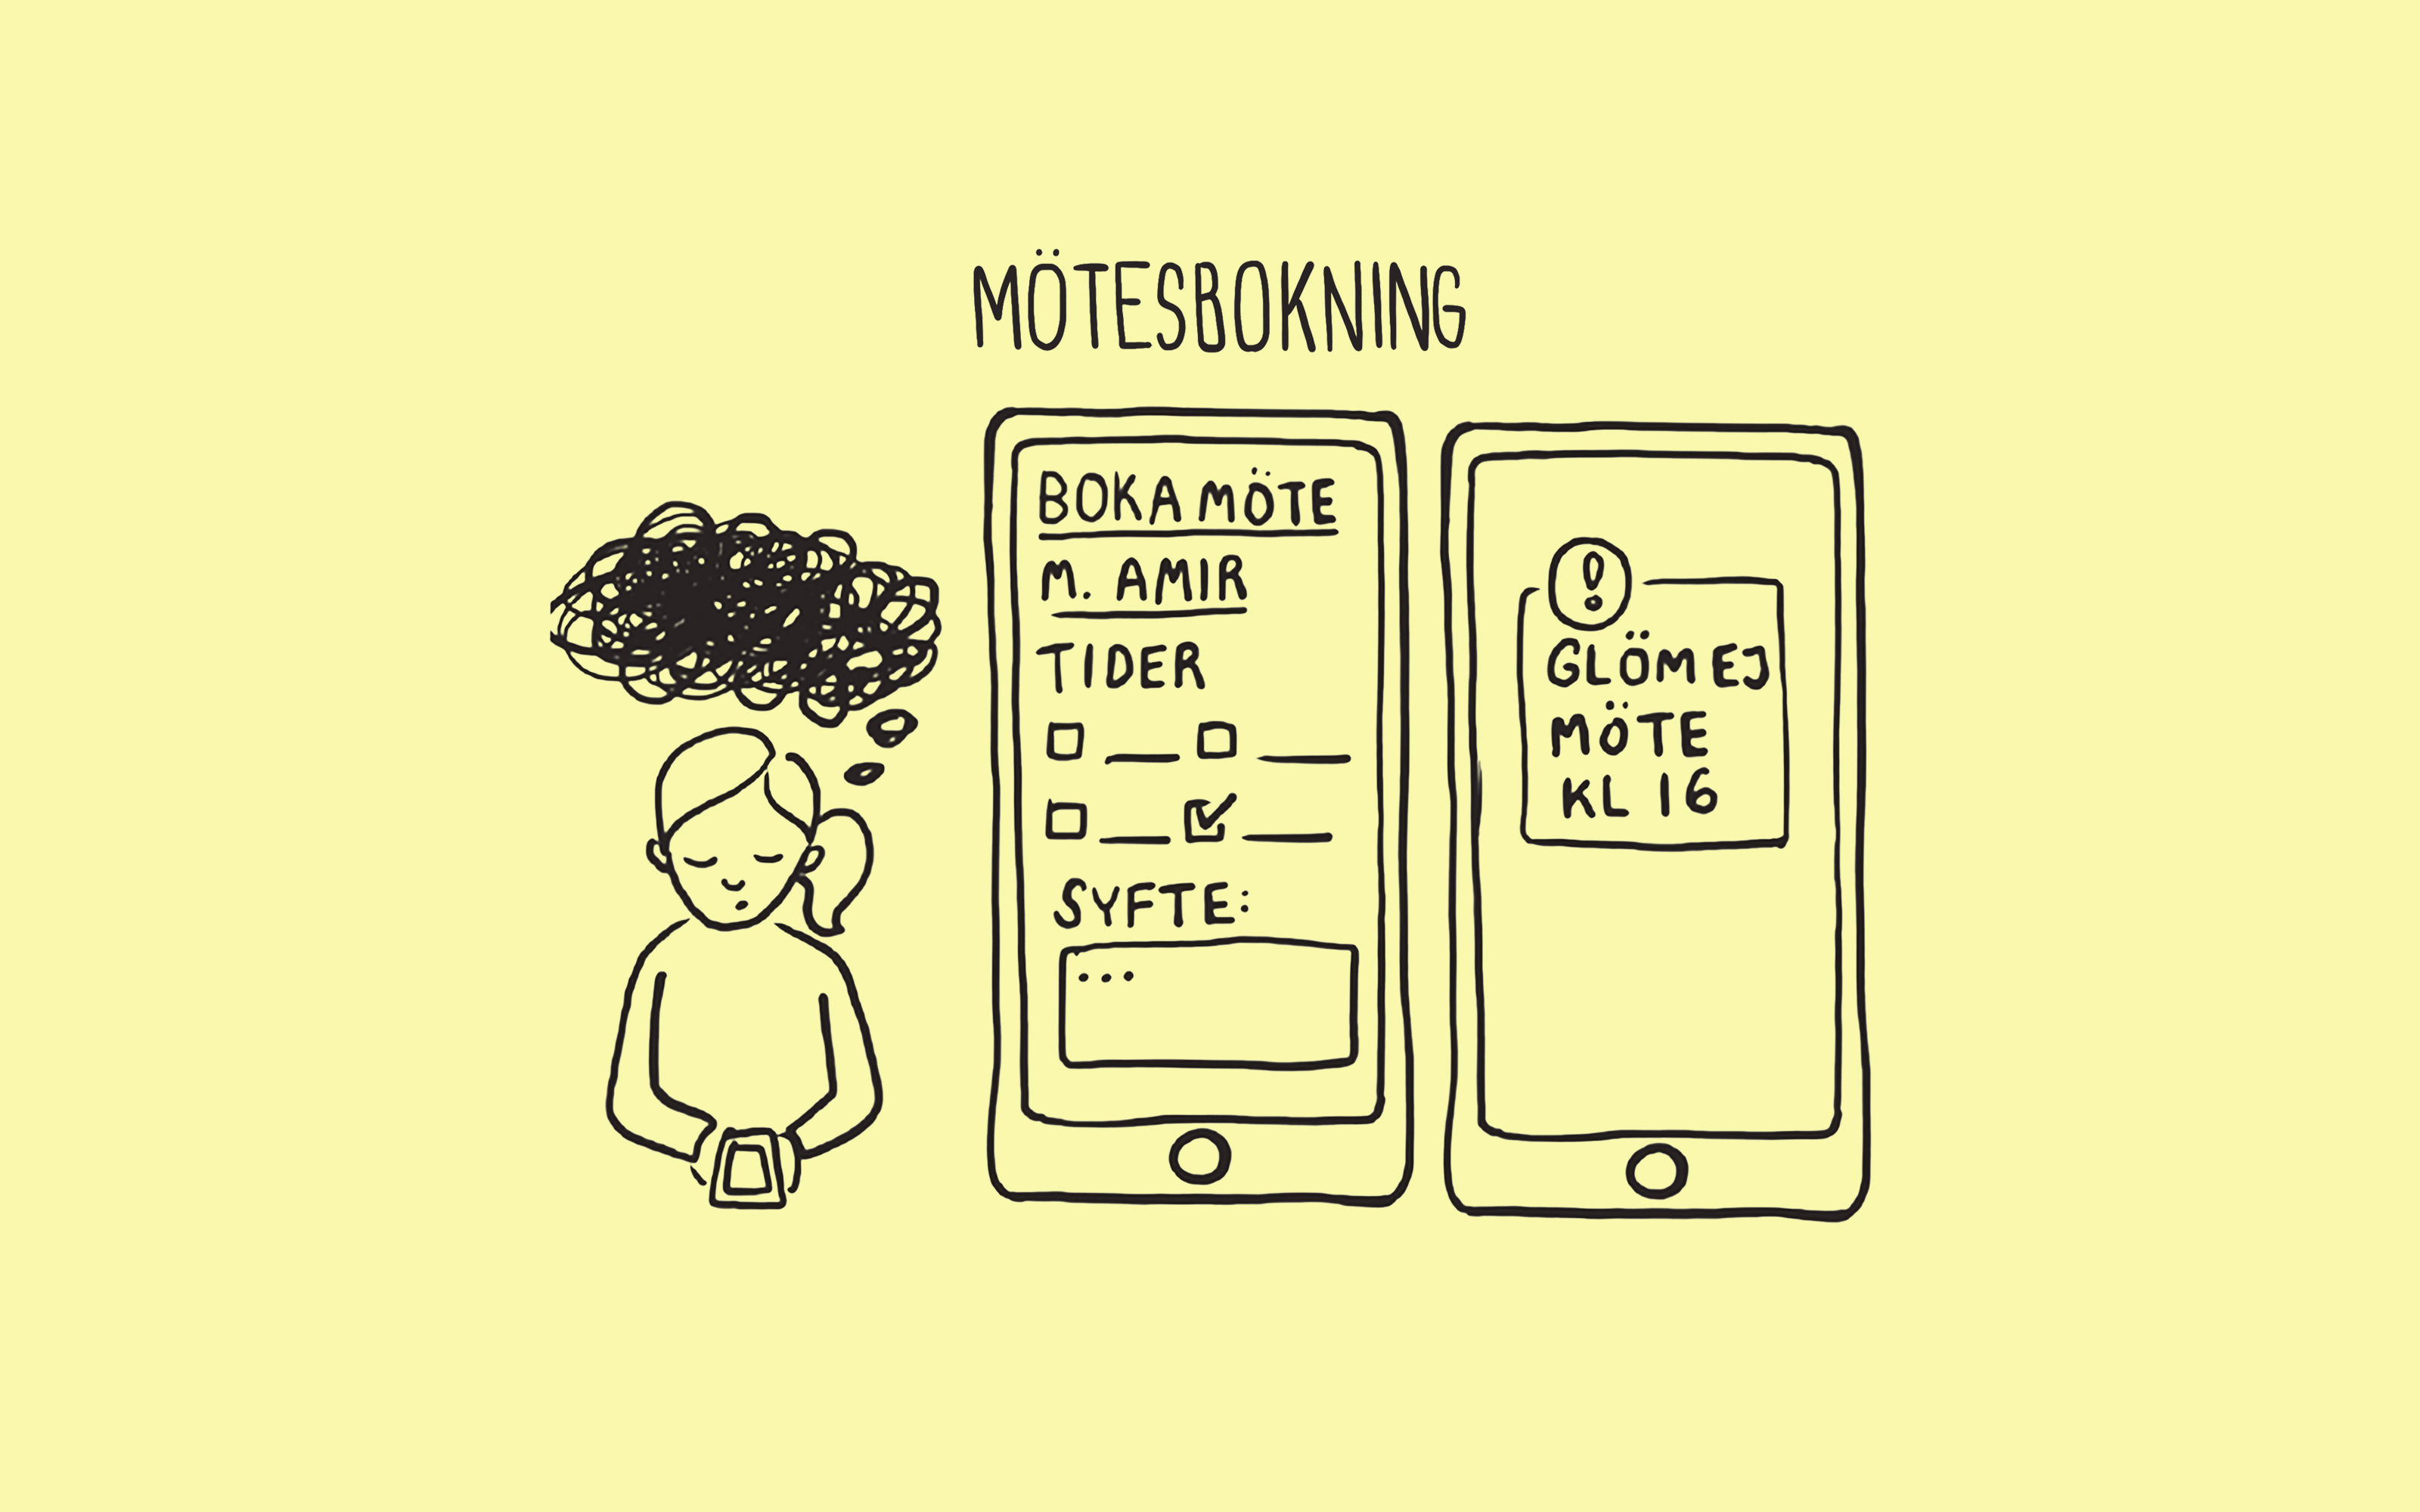 MÖTESBOKNING
BOKA MÖTE
M. AMIR
TIDER
SYFTE:
...
!
GLÖM EJ
MÖTE
KL 16